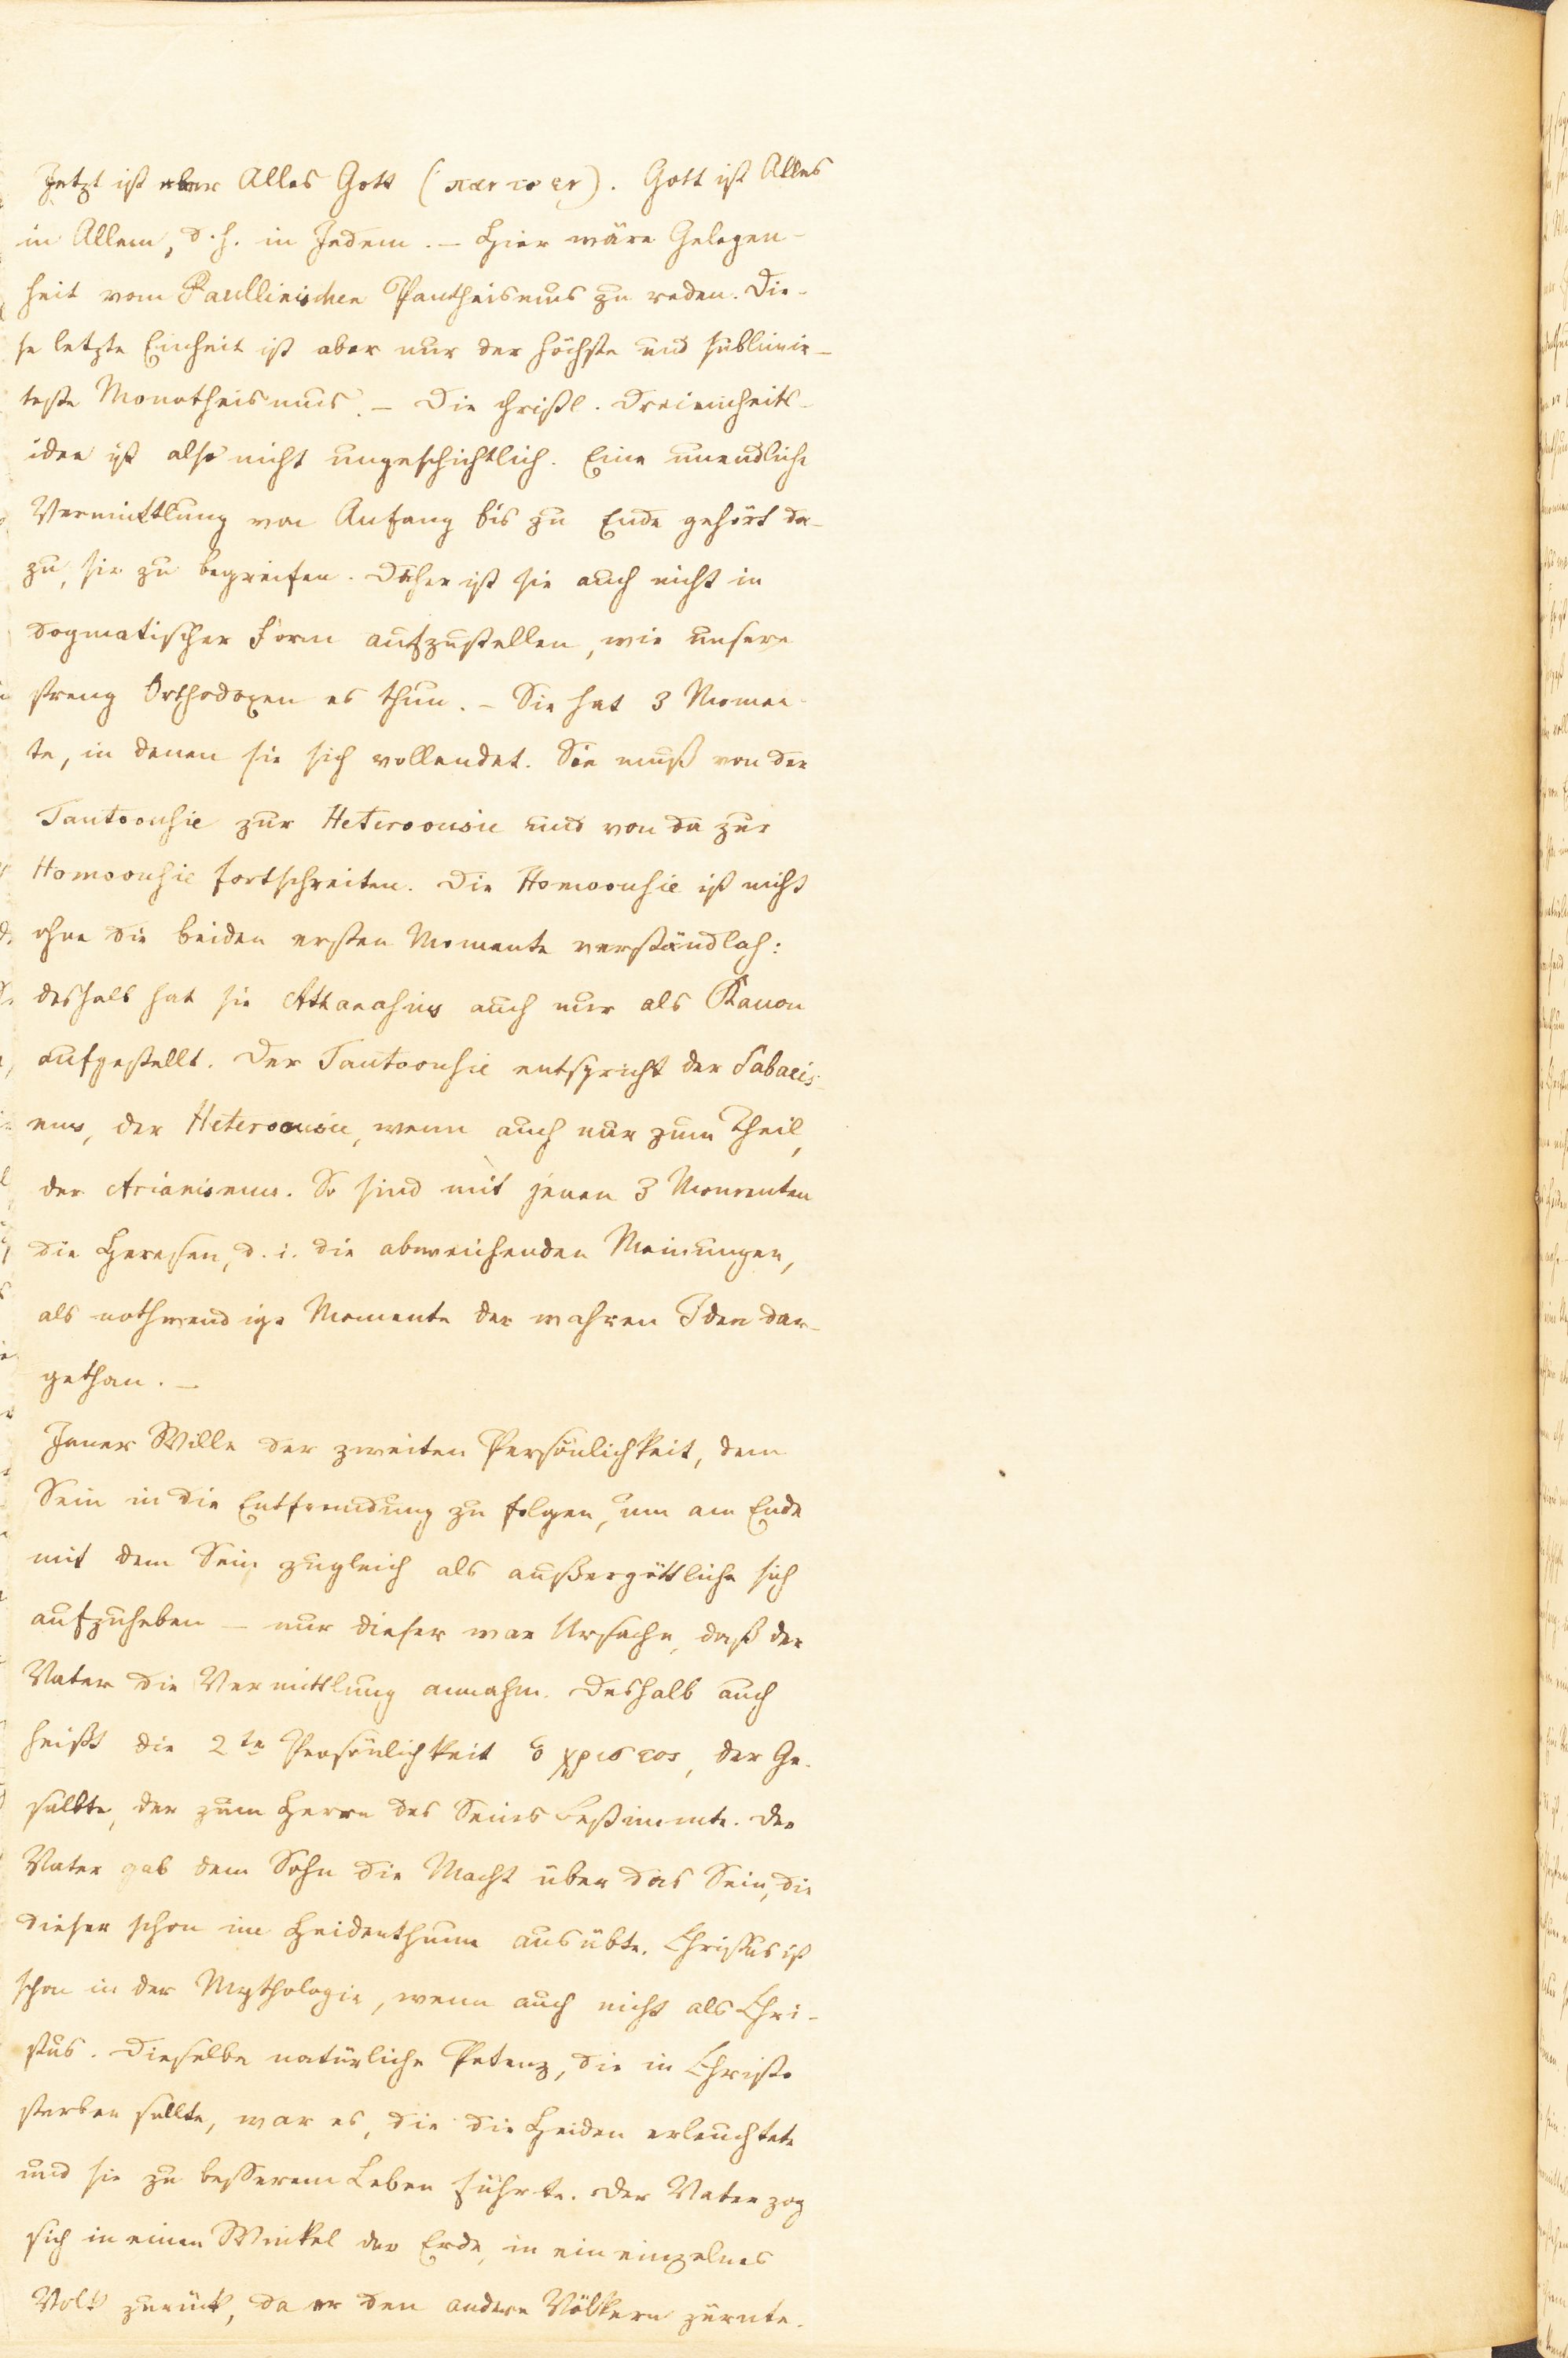 Jetzt ist aber Alles Gott (παν το εν). Gott ist Alles
in Allem, d. h. in Jedem. – Hier wäre Gelegen-
heit vom Paullinischen Pantheismus zu reden. Die-
se letzte Einheit ist aber nur der höchste und sublimir-
teste Monotheismus. – Die christl. Dreieinheits-
idee ist also nicht ungeschichtlich. Eine unendliche
Vermittlung von Anfang bis zu Ende gehört da-
zu, sie zu begreifen. Daher ist sie auch nicht in
dogmatischer Form aufzustellen, wie unsere
streng Orthodoxen es thun. – Sie hat 3 Momen-
te, in denen sie sich vollendet. Sie muß von der
Tautoousie zur Heteroousie und von da zur
Homoousie fortschreiten. Die Homoousie ist nicht
ohne die beiden ersten Momente verständlich:
deshalb hat sie Athanasius auch nur als Kanon
aufgestellt. Der Tautoousie entspricht der Sabaeis-
mus, der Heteroousie, wenn auch nur zum Theil,
der Arianismus. So sind mit jenen 3 Momenten
die Heresen, d. i. die abweichenden Meinungen,
als nothwendige Momente der wahren Idee dar-
gethan. –
Jener Wille der zweiten Persönlichkeit, dem
Sein in die Entfremdung zu folgen, um am Ende
mit dem Sein zugleich als außergöttliche sich
aufzuheben – nur dieser war Ursache, daß der
Vater die Vermittlung annahm. Deshalb auch
heißt die 2te Persönlichkeit ὁ χριστος, der Ge-
salbte, der zum Herrn des Seins bestimmte. Der
Vater gab dem Sohn die Macht über das Sein, die
dieser schon im Heidenthum ausübte. Christus ist
schon in der Mythologie, wenn auch nicht als Chri-
stus. Dieselbe natürliche Potenz, die in Christo
sterben sollte, war es, die die Heiden erleuchtete
und sie zu besserem Leben führte. Der Vater zog
sich in einen Winkel der Erde, in ein einzelnes
Volk zurück, da er den andern Völkern zürnte.